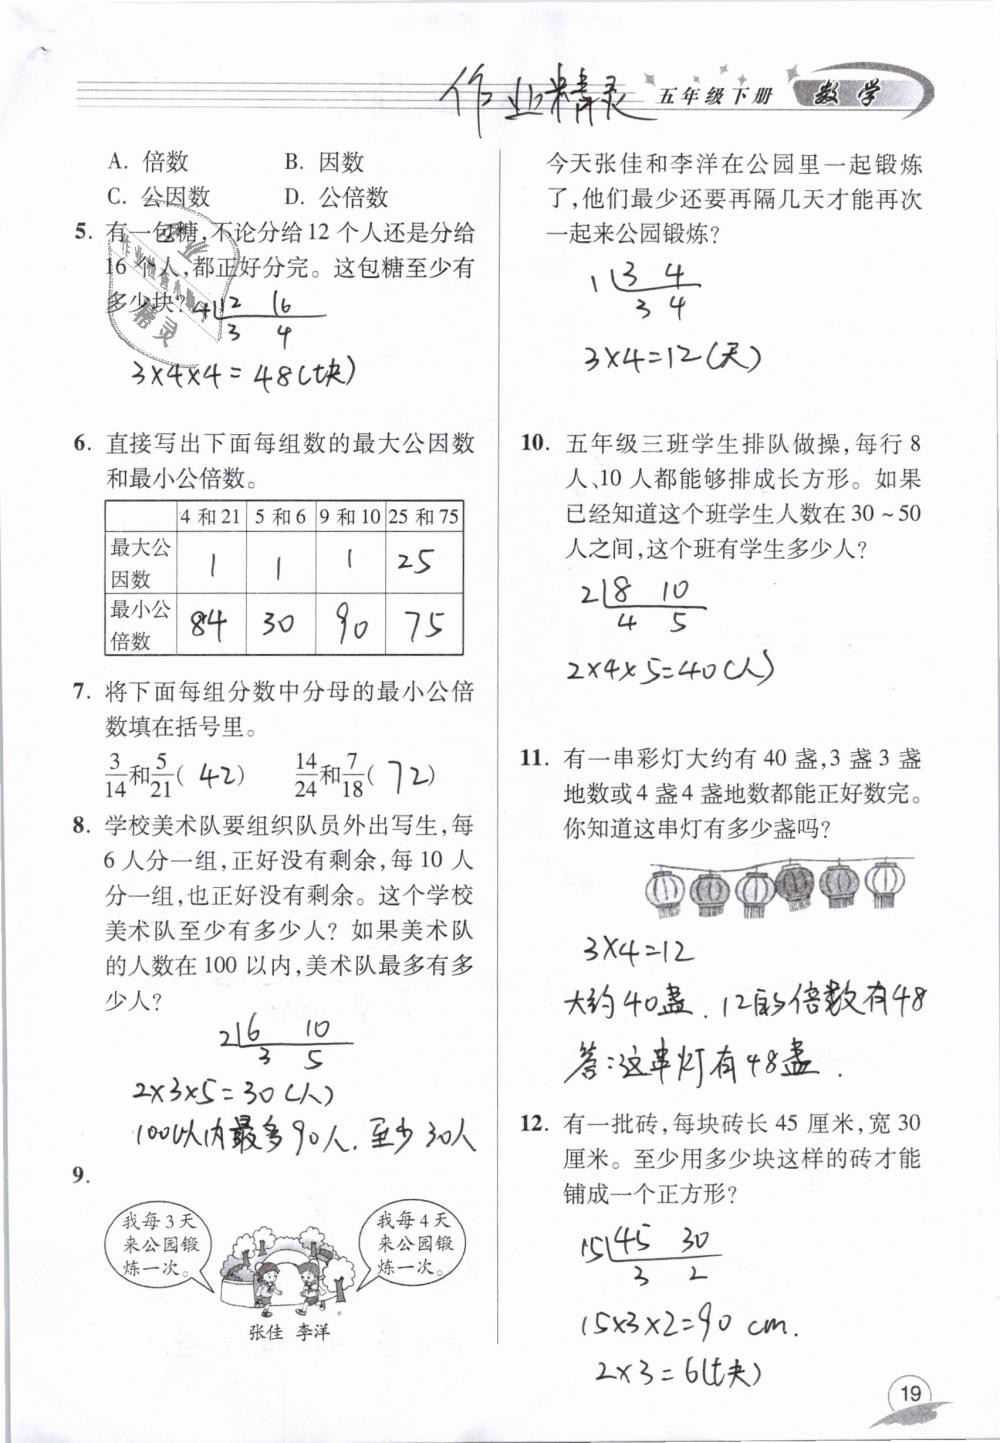 作业精灵 五年级下册 数学
A. 倍数 B. 因数
C. 公因数 D. 公倍数
5. 有一包糖,不论分给12个人还是分给
16个人,都正好分完。这包糖至少有
多少块?
4 12 16
3 4
3×4×4=48(块)
6. 直接写出下面每组数的最大公因数
和最小公倍数。
4和21 5和6 9和10 25和75
最大公因数 1 1 1 25
最小公倍数 84 30 90 75
7. 将下面每组分数中分母的最小公倍
数填在括号里。
3/14和5/21(42) 14/24和7/18(72)
8. 学校美术队要组织队员外出写生,每
6人分一组,正好没有剩余,每10人
分一组,也正好没有剩余。这个学校
美术队至少有多少人?如果美术队
的人数在100以内,美术队最多有多
少人?
2 6 10
3 5
2×3×5=30(人)
100以内最多90人.至少30人
9.
我每3天
来公园锻
炼一次。
我每4天
来公园锻
炼一次。
张佳 李洋
今天张佳和李洋在公园里一起锻炼
了,他们最少还要再隔几天才能再次
一起来公园锻炼?
1 3 4
3 4
3×4=12(天)
10. 五年级三班学生排队做操,每行8
人、10人都能够排成长方形。如果
已经知道这个班学生人数在30~50
人之间,这个班有学生多少人?
2 8 10
4 5
2×4×5=40(人)
11. 有一串彩灯大约有40盏,3盏3盏
地数或4盏4盏地数都能正好数完。
你知道这串灯有多少盏吗?
3×4=12
大约40盏.12的倍数有48
答:这串灯有48盏.
12. 有一批砖,每块砖长45厘米,宽30
厘米。至少用多少块这样的砖才能
铺成一个正方形?
15 45 30
3 2
15×3×2=90 cm.
2×3=6(块)
19